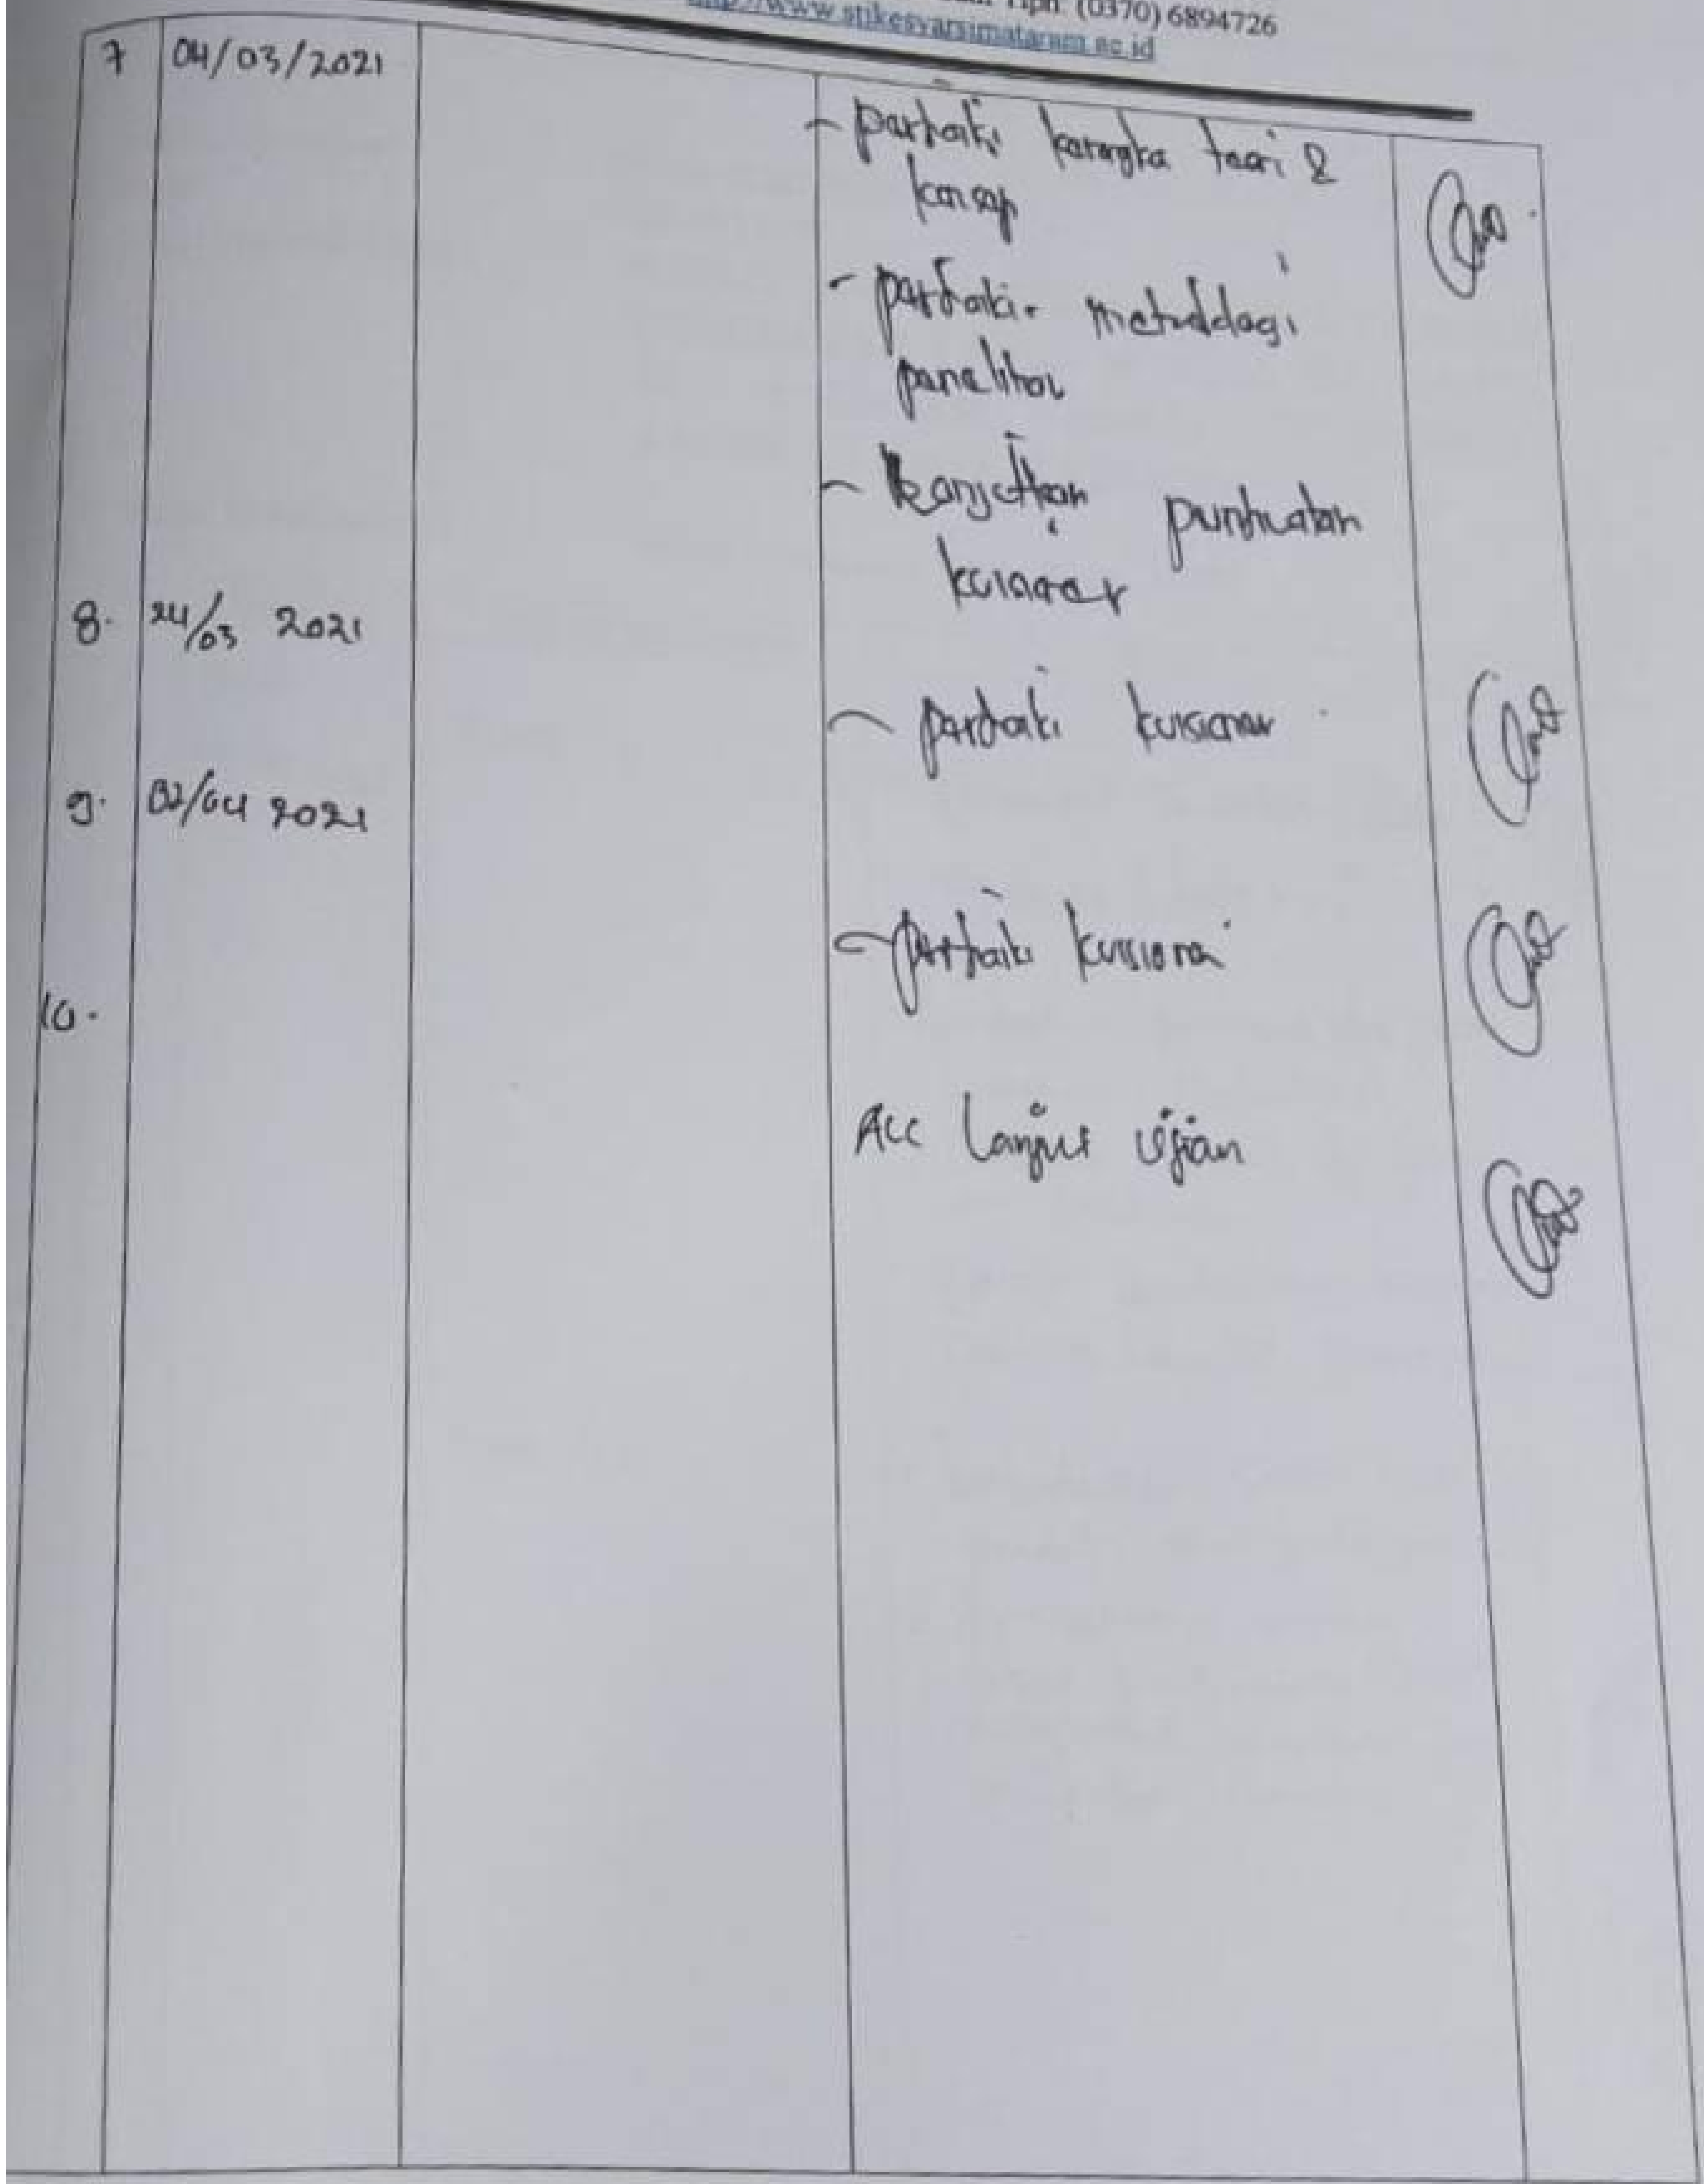 Tlpn. (0370) 6894726
http://www.stikesyarsimataram.ac.id
7 04/03/2021
- perbaiki kerangka teori &
konsep
- perbaiki metodologi
penelitian
- Lanjutkan pembuatan
kuisioner
8. 24/03 2021
- perbaiki kuisioner
9. 02/04 2021
- perbaiki kuisioner
10.
Acc Lanjut ujian